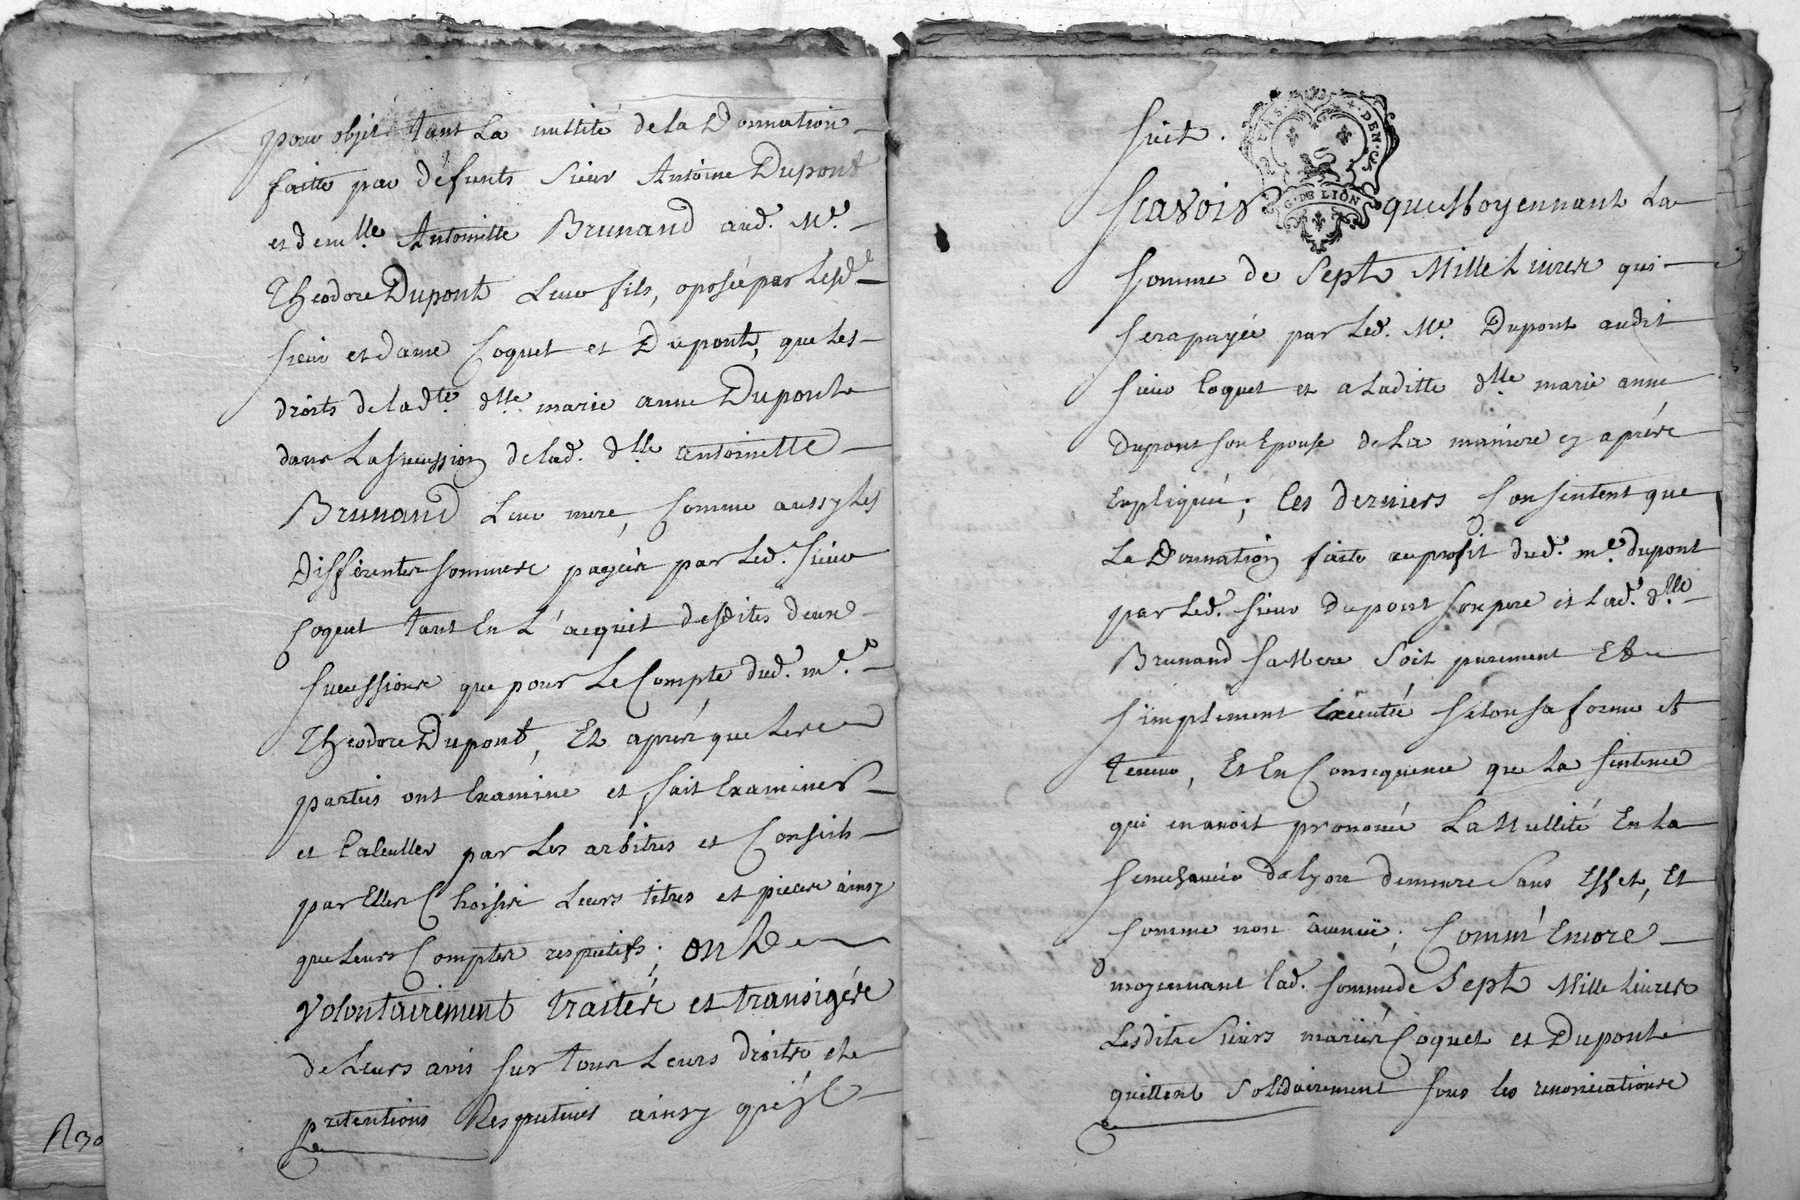 pour objet tant La nullité de la Donnation
faitte par défunts Sieur Antoine Dupont
et demlle Antoinette Brunand aud. Me.
Theodore Dupont Leur fils, oposée par Lesd.
sieur et dame Coquet et Dupont, que Les
droits de ladte. dlle. marie anne Dupont
dans La Succession de lad. dlle antoinette
Brunand Leur mere, Comme aussy Les
differentes sommes payées par Led. Sieur
Coquet tant En L'acquit desdites deux
successions que pour Le Compte dud. me.
Theodore Dupont, Et après que Les
parties ont Examiné et fait Examiner
et Calculler par Les arbitres et Conseils
par Elles Choisis Leurs titres et pieces ainsy
que Leurs Comptes respectifs; ont
volontairement traittés et transigés
de Leurs avis sur tous Leurs droits et
pretentions Respectives ainsy qu'il
R30
suit.
G. DE LION
Scavoir que Moyennant La
somme de Sept Mille Livres qui
sera payée par Led. Me. Dupont audit
sieur Coquet et a Laditte dlle marie anne
Dupont son Epouse de La maniere cy après
Expliquée; Ces derniers Consentent que
La Donnation faite au profit dud. me. dupont
par Led. sieur dupont son pere et Lad. dlle
Brunand sa Mere Soit purement Et
simplement Executée selon sa forme et
teneur, Et En Consequence que La sentence
qui en avoit prononcé La Nullité En La
senechaucée de lyon demeure Sans Effet, Et
Comme non avenüe; Comm' Encore
moyennant Lad. somme de Sept Mille Livres
Lesdits Sieurs mariés Coquet et Dupont
quittent Solidairement sous les renonciations